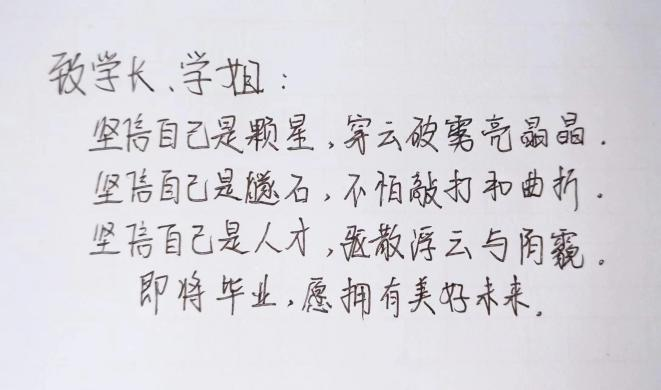 致学长、学姐：
坚信自己是颗星，穿云破雾亮晶晶．
坚信自己是燧石，不怕敲打和曲折．
坚信自己是人才，驱散浮云与阴霾。
即将毕业，愿拥有美好未来。